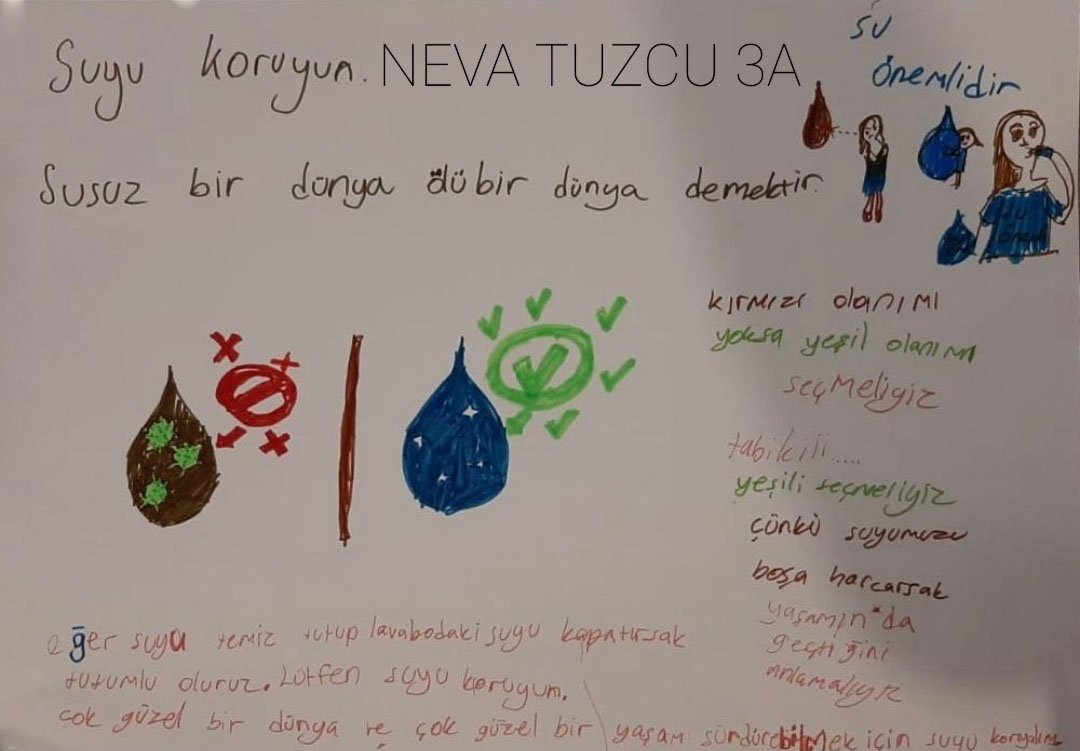 Suyu koruyun. NEVA TUZCU 3A
Susuz bir dünya ölü bir dünya demektir.
su
önemlidir
kırmızı olanımı
yoksa yeşil olanımı
seçmeliyiz
tabikili.....
yeşili seçmeliyiz
çünkü suyumuzu
boşa harcarsak
yaşamın da
geçtiğini
anlamalıyız
eğer suyu temiz tutup lavabodaki suyu kapatırsak
tutumlu oluruz. Lütfen suyu koruyun.
çok güzel bir dünya ve çok güzel bir yaşam sürdürebilmek için suyu koruyalım